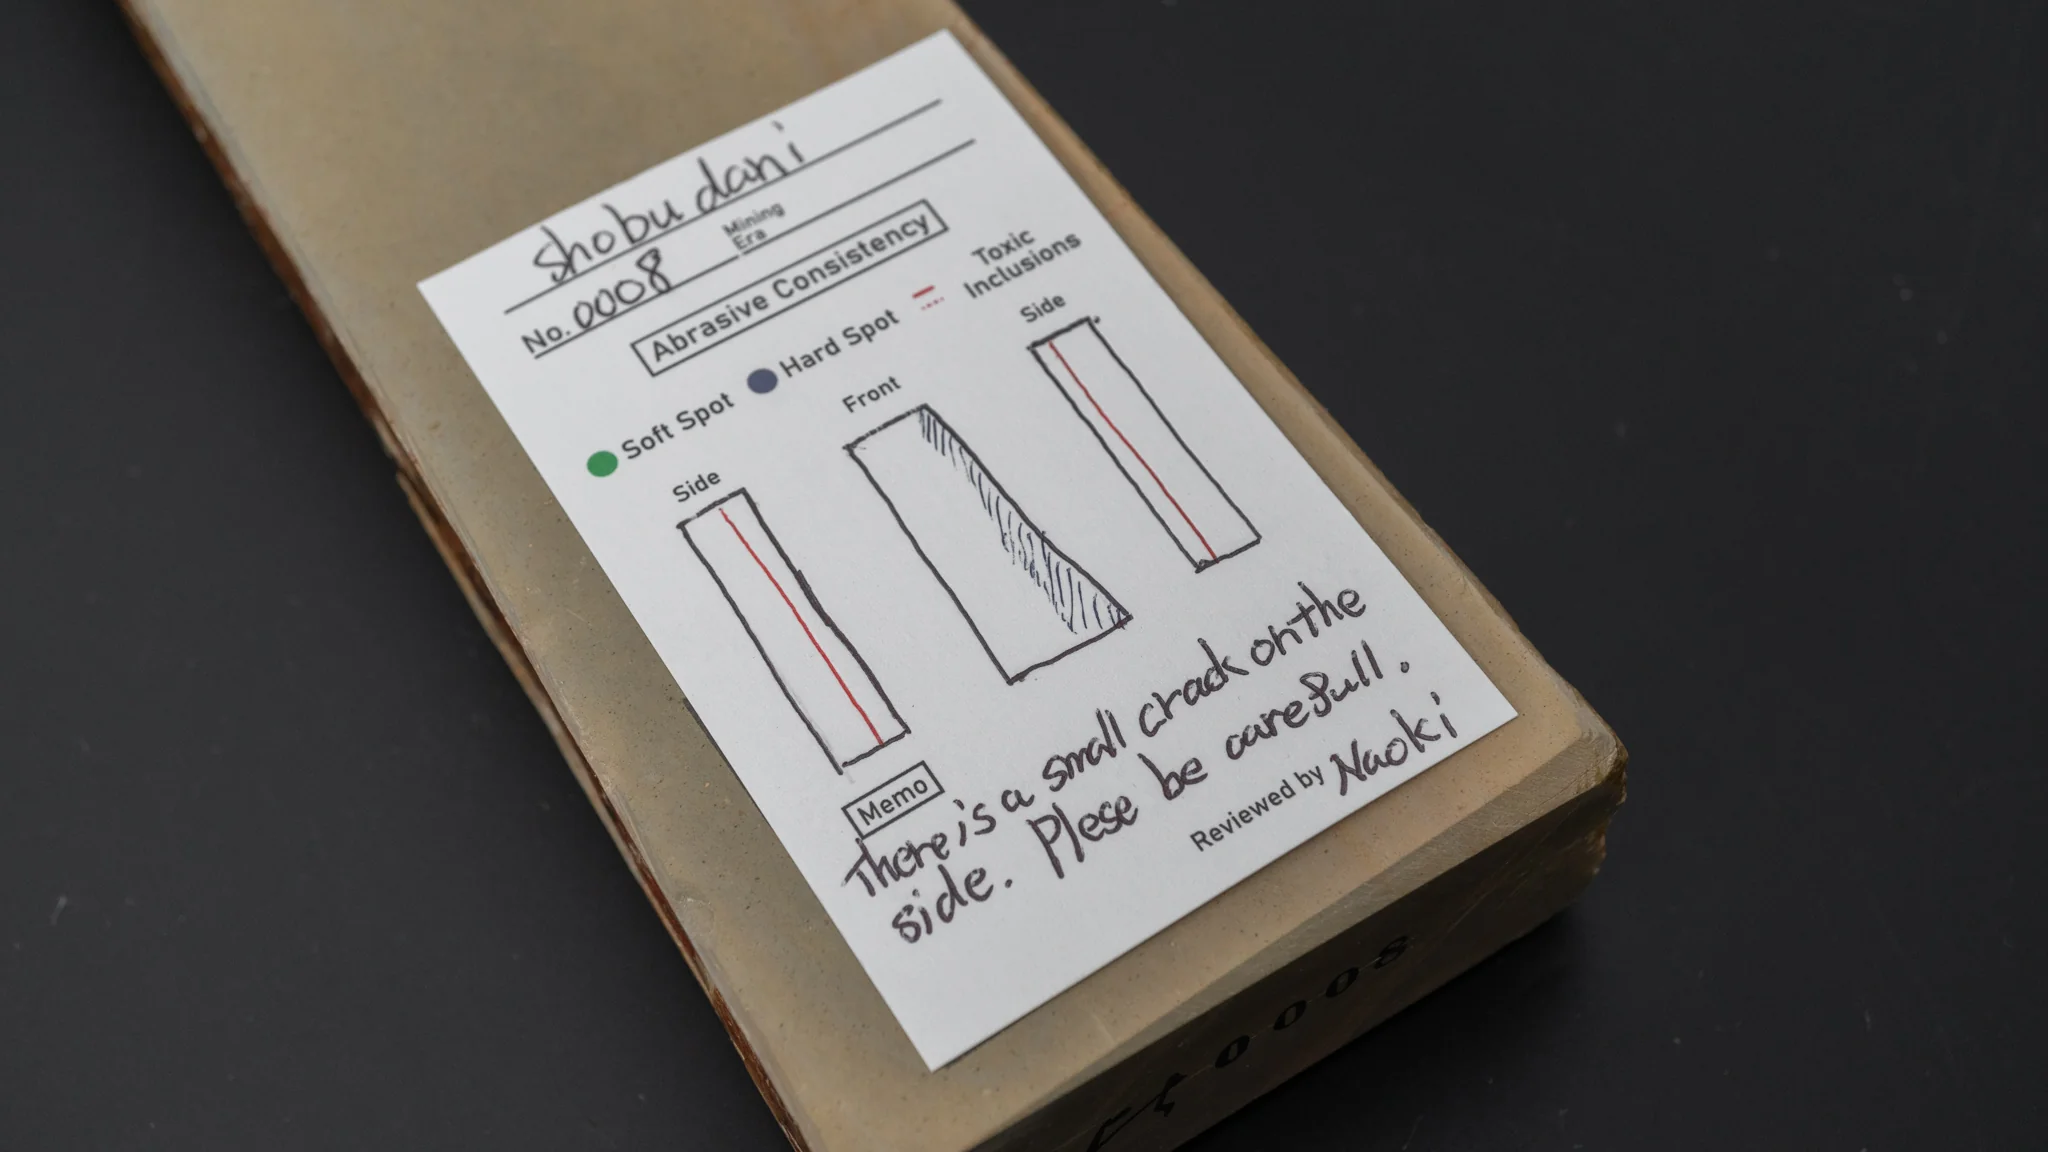 Shobudani
No. 0008
Mining
Era
Abrasive Consistency
Soft Spot
Hard Spot
Toxic
Inclusions
Side
Front
Side
Memo
There is a small crack on the
side. Plese be carefull.
Reviewed by Naoki
0008